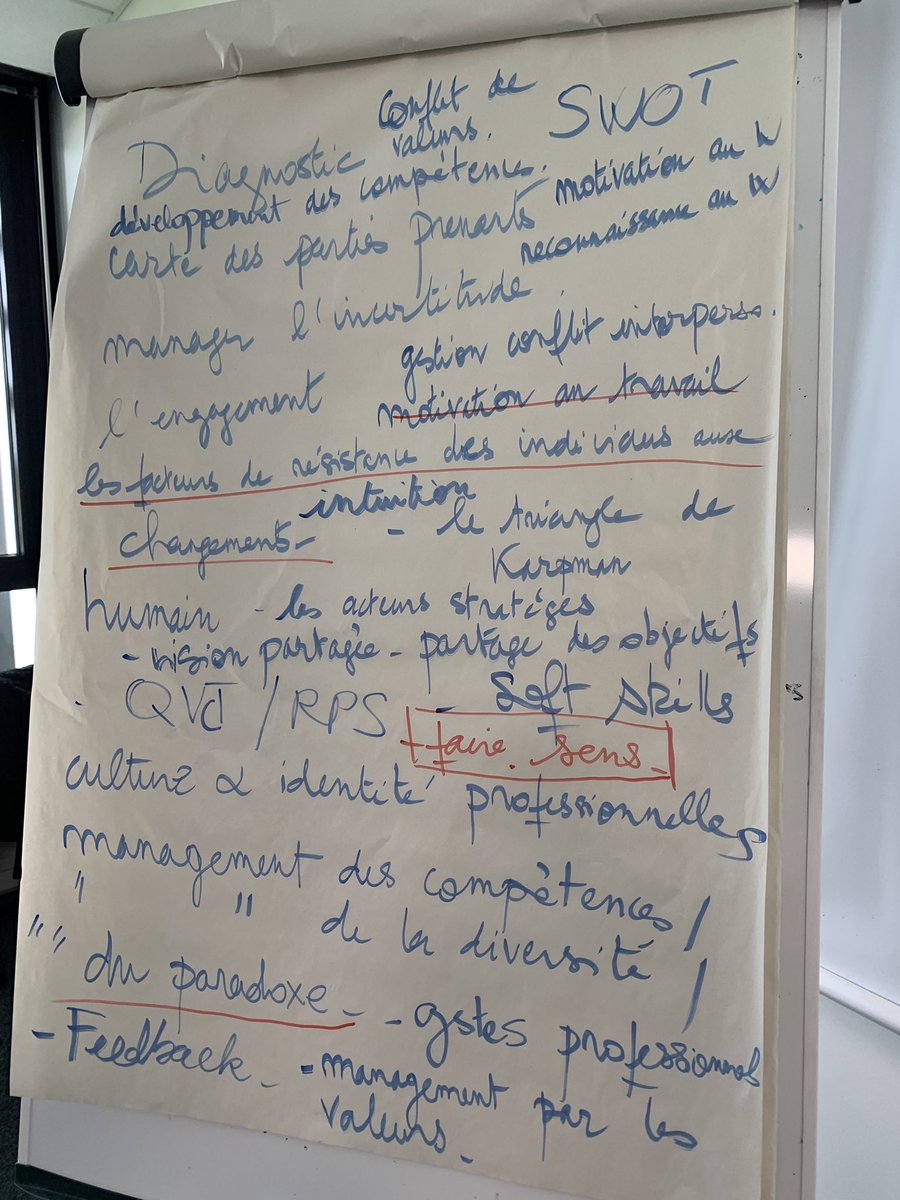 Conflit de
valeurs.
Diagnostic
SWOT
développement des compétence.
motivation au W
carte des parties prenants
reconnaissance au W
manager l'incertitude.
gestion conflit interperso.
l'engagement
motivation au travail
les facteurs de résistence des individus aux
changements -
intuition
- le triangle de
Karpman
humain - les acteurs stratèges
- vision partagée - partage des objectifs
- QVCT / RPS
- Soft skills
faire sens -
culture & identité professionnelles
management des compétences /
" " de la diversité /
" " du paradoxe - - gstes professionnel
- Feedback - - management par les
valeurs -